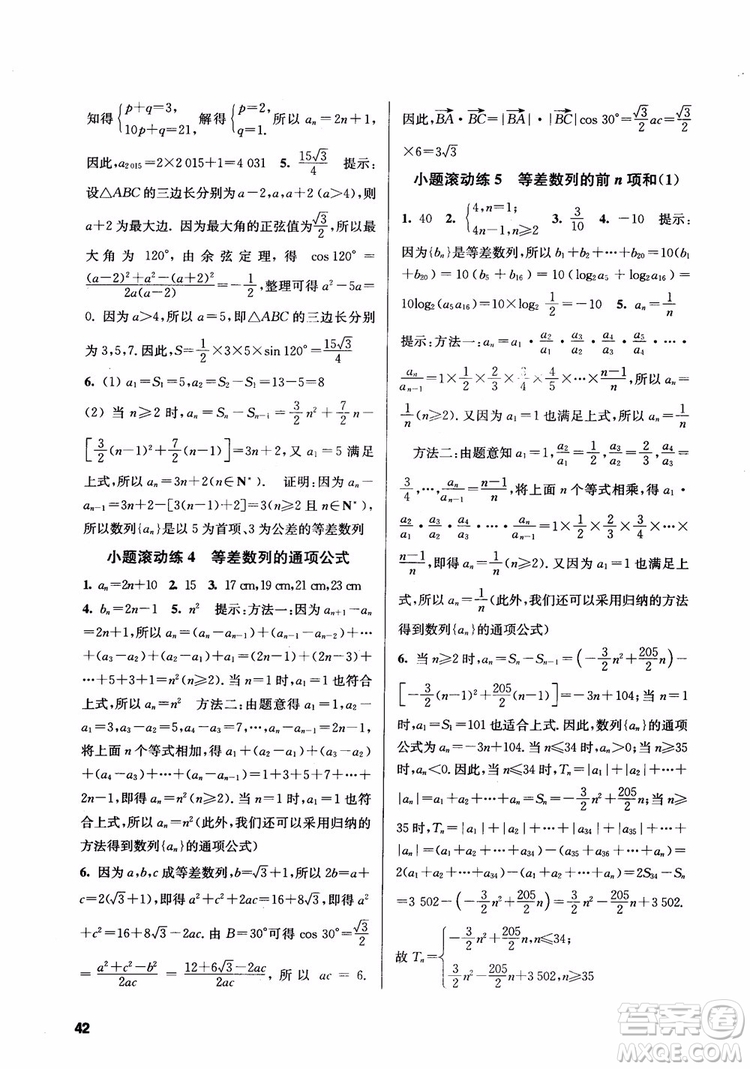 知得{p+q=3, 10p+q=21, 解得{p=2, q=1. 所以 aₙ=2n+1,
因此,a₂₀₁₅=2×2 015+1=4 031 5. 15√3/4 提示:
设△ABC的三边长分别为a-2,a,a+2(a>4),则
a+2为最大边. 因为最大角的正弦值为√3/2,所以最
大角为120°,由余弦定理,得 cos120°=
((a-2)²+a²-(a+2)²)/(2a(a-2))=-1/2,整理得a²-5a=
0. 因为a>4,所以a=5,即△ABC的三边长分别
为3,5,7. 因此,S=1/2×3×5×sin 120°=15√3/4
6. (1) a₁=S₁=5,a₂=S₂-S₁=13-5=8
(2) 当n≥2时,aₙ=Sₙ-Sₙ₋₁=3/2 n²+7/2 n-
[3/2(n-1)²+7/2(n-1)]=3n+2,又a₁=5满足
上式,所以aₙ=3n+2(n∈N*) 证明:因为aₙ-
aₙ₋₁=3n+2-[3(n-1)+2]=3(n≥2且n∈N*),
所以数列{aₙ}是以5为首项、3为公差的等差数列
小题滚动练 4 等差数列的通项公式
1. aₙ=2n+10 2. 15 3. 17 cm,19 cm,21 cm,23 cm
4. bₙ=2n-1 5. n² 提示:方法一:因为aₙ₊₁-aₙ
=2n+1,所以aₙ=(aₙ-aₙ₋₁)+(aₙ₋₁-aₙ₋₂)+…
+(a₃-a₂)+(a₂-a₁)+a₁=(2n-1)+(2n-3)+
…+5+3+1=n²(n≥2). 当n=1时,a₁=1也符合
上式,所以aₙ=n² 方法二:由题意得a₁=1,a₂-
a₁=3,a₃-a₂=5,a₄-a₃=7,…,aₙ-aₙ₋₁=2n-1,
将上面n个等式相加,得a₁+(a₂-a₁)+(a₃-a₂)
+(a₄-a₃)+…+(aₙ-aₙ₋₁)=1+3+5+7+…+
2n-1,即得aₙ=n²(n≥2). 当n=1时,a₁=1也符
合上式,所以aₙ=n²(此外,我们可以采用归纳的方
法得到数列{aₙ}的通项公式)
6. 因为a,b,c成等差数列,b=√3+1,所以2b=a+
c=2(√3+1),所以a²+c²+2ac=16+8√3,即得a²
+c²=16+8√3-2ac. 由B=30°可得cos 30°=√3/2
=(a²+c²-b²)/2ac=(12+6√3-2ac)/2ac,所以 ac=6.
因此,BA·BC=|BA|·|BC|cos 30°=√3/2 ac=√3/2
×6=3√3
小题滚动练 5 等差数列的前n项和(1)
1. 40 2. {4,n=1; 4n-1,n≥2 3. 3/10 4. -10 提示:
因为{bₙ}是等差数列,所以b₁+b₂+…+b₂₀=10(b₁
+b₂₀)=10(b₅+b₁₆)=10(log₂a₅+log₂a₁₆)=
10log₂(a₅a₁₆)=10×log₂ 1/2=-10 5. aₙ=1/n
提示:方法一:aₙ=a₁·a₂/a₁·a₃/a₂·a₄/a₃·a₅/a₄·…·
aₙ/aₙ₋₁=1×1/2×2/3×3/4×4/5×…×(n-1)/n,所以aₙ=
1/n(n≥2). 又因为a₁=1也满足上式,所以aₙ=1/n
方法二:由题意知a₁=1,a₂/a₁=1/2,a₃/a₂=2/3,a₄/a₃=
3/4,…,aₙ/aₙ₋₁=(n-1)/n,将上面n个等式相乘,得a₁·
a₂/a₁·a₃/a₂·a₄/a₃·…·aₙ/aₙ₋₁=1×1/2×2/3×3/4×…×
(n-1)/n,即得aₙ=1/n(n≥2). 又因为a₁=1也满足上
式,所以aₙ=1/n(此外,我们可以采用归纳的方法
得到数列{aₙ}的通项公式)
6. 当n≥2时,aₙ=Sₙ-Sₙ₋₁=(-3/2 n²+205/2 n)
-[-3/2(n-1)²+205/2(n-1)]=-3n+104. 当n=1
时,a₁=S₁=101也适合上式. 因此,数列{aₙ}的通项
公式为aₙ=-3n+104. 当n≤34时,aₙ>0;当n≥35
时,aₙ<0. 当n≤34时,Tₙ=|a₁|+|a₂|+…+
|aₙ|=a₁+a₂+…+aₙ=Sₙ=-3/2 n²+205/2 n;当n≥
35时,Tₙ=|a₁|+|a₂|+…+|a₃₄|+|a₃₅|+…+|aₙ|
=(a₁+a₂+…+a₃₄)-(a₃₅+a₃₆+…+aₙ)=
2(a₁+a₂+…+a₃₄)-(a₁+a₂+…+aₙ)=2S₃₄-Sₙ=
3 502-(-3/2 n²+205/2 n)=3/2 n²-205/2 n+3 502.
故Tₙ={-3/2 n²+205/2 n,n≤34; 3/2 n²-205/2 n+3 502,n≥35
42
答案圈
MXQE.COM